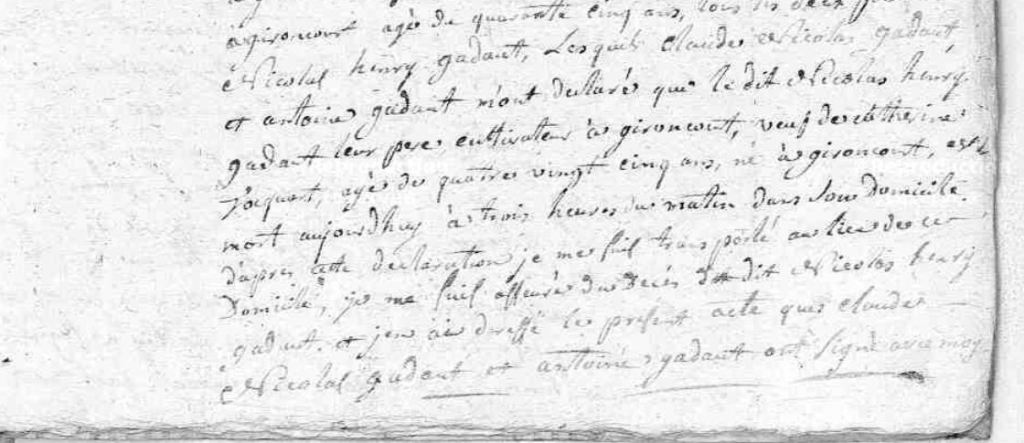 agironcourt agé de quarante cinq ans, tous les deux
Nicolas henry gadaut, Lesquels Claude Nicolas gadaut
et antoine gadaut m'ont declaré que le dit Nicolas henry
gadaut leur pere, cultivateur à gironcourt, veuf de catherine
Jacquart, agé de quatre vingt cinq ans, né à gironcourt, est
mort aujourdhuy à trois heures du matin dans son domicile.
d'apres cette declaration je me suis transporté au lieu de ce
Domicile, je me suis assuré du Decés du dit Nicolas henry
gadaut. et j'en ai dressé le present acte que claude
Nicolas gadaut et antoine gadaut ont signé avec moy